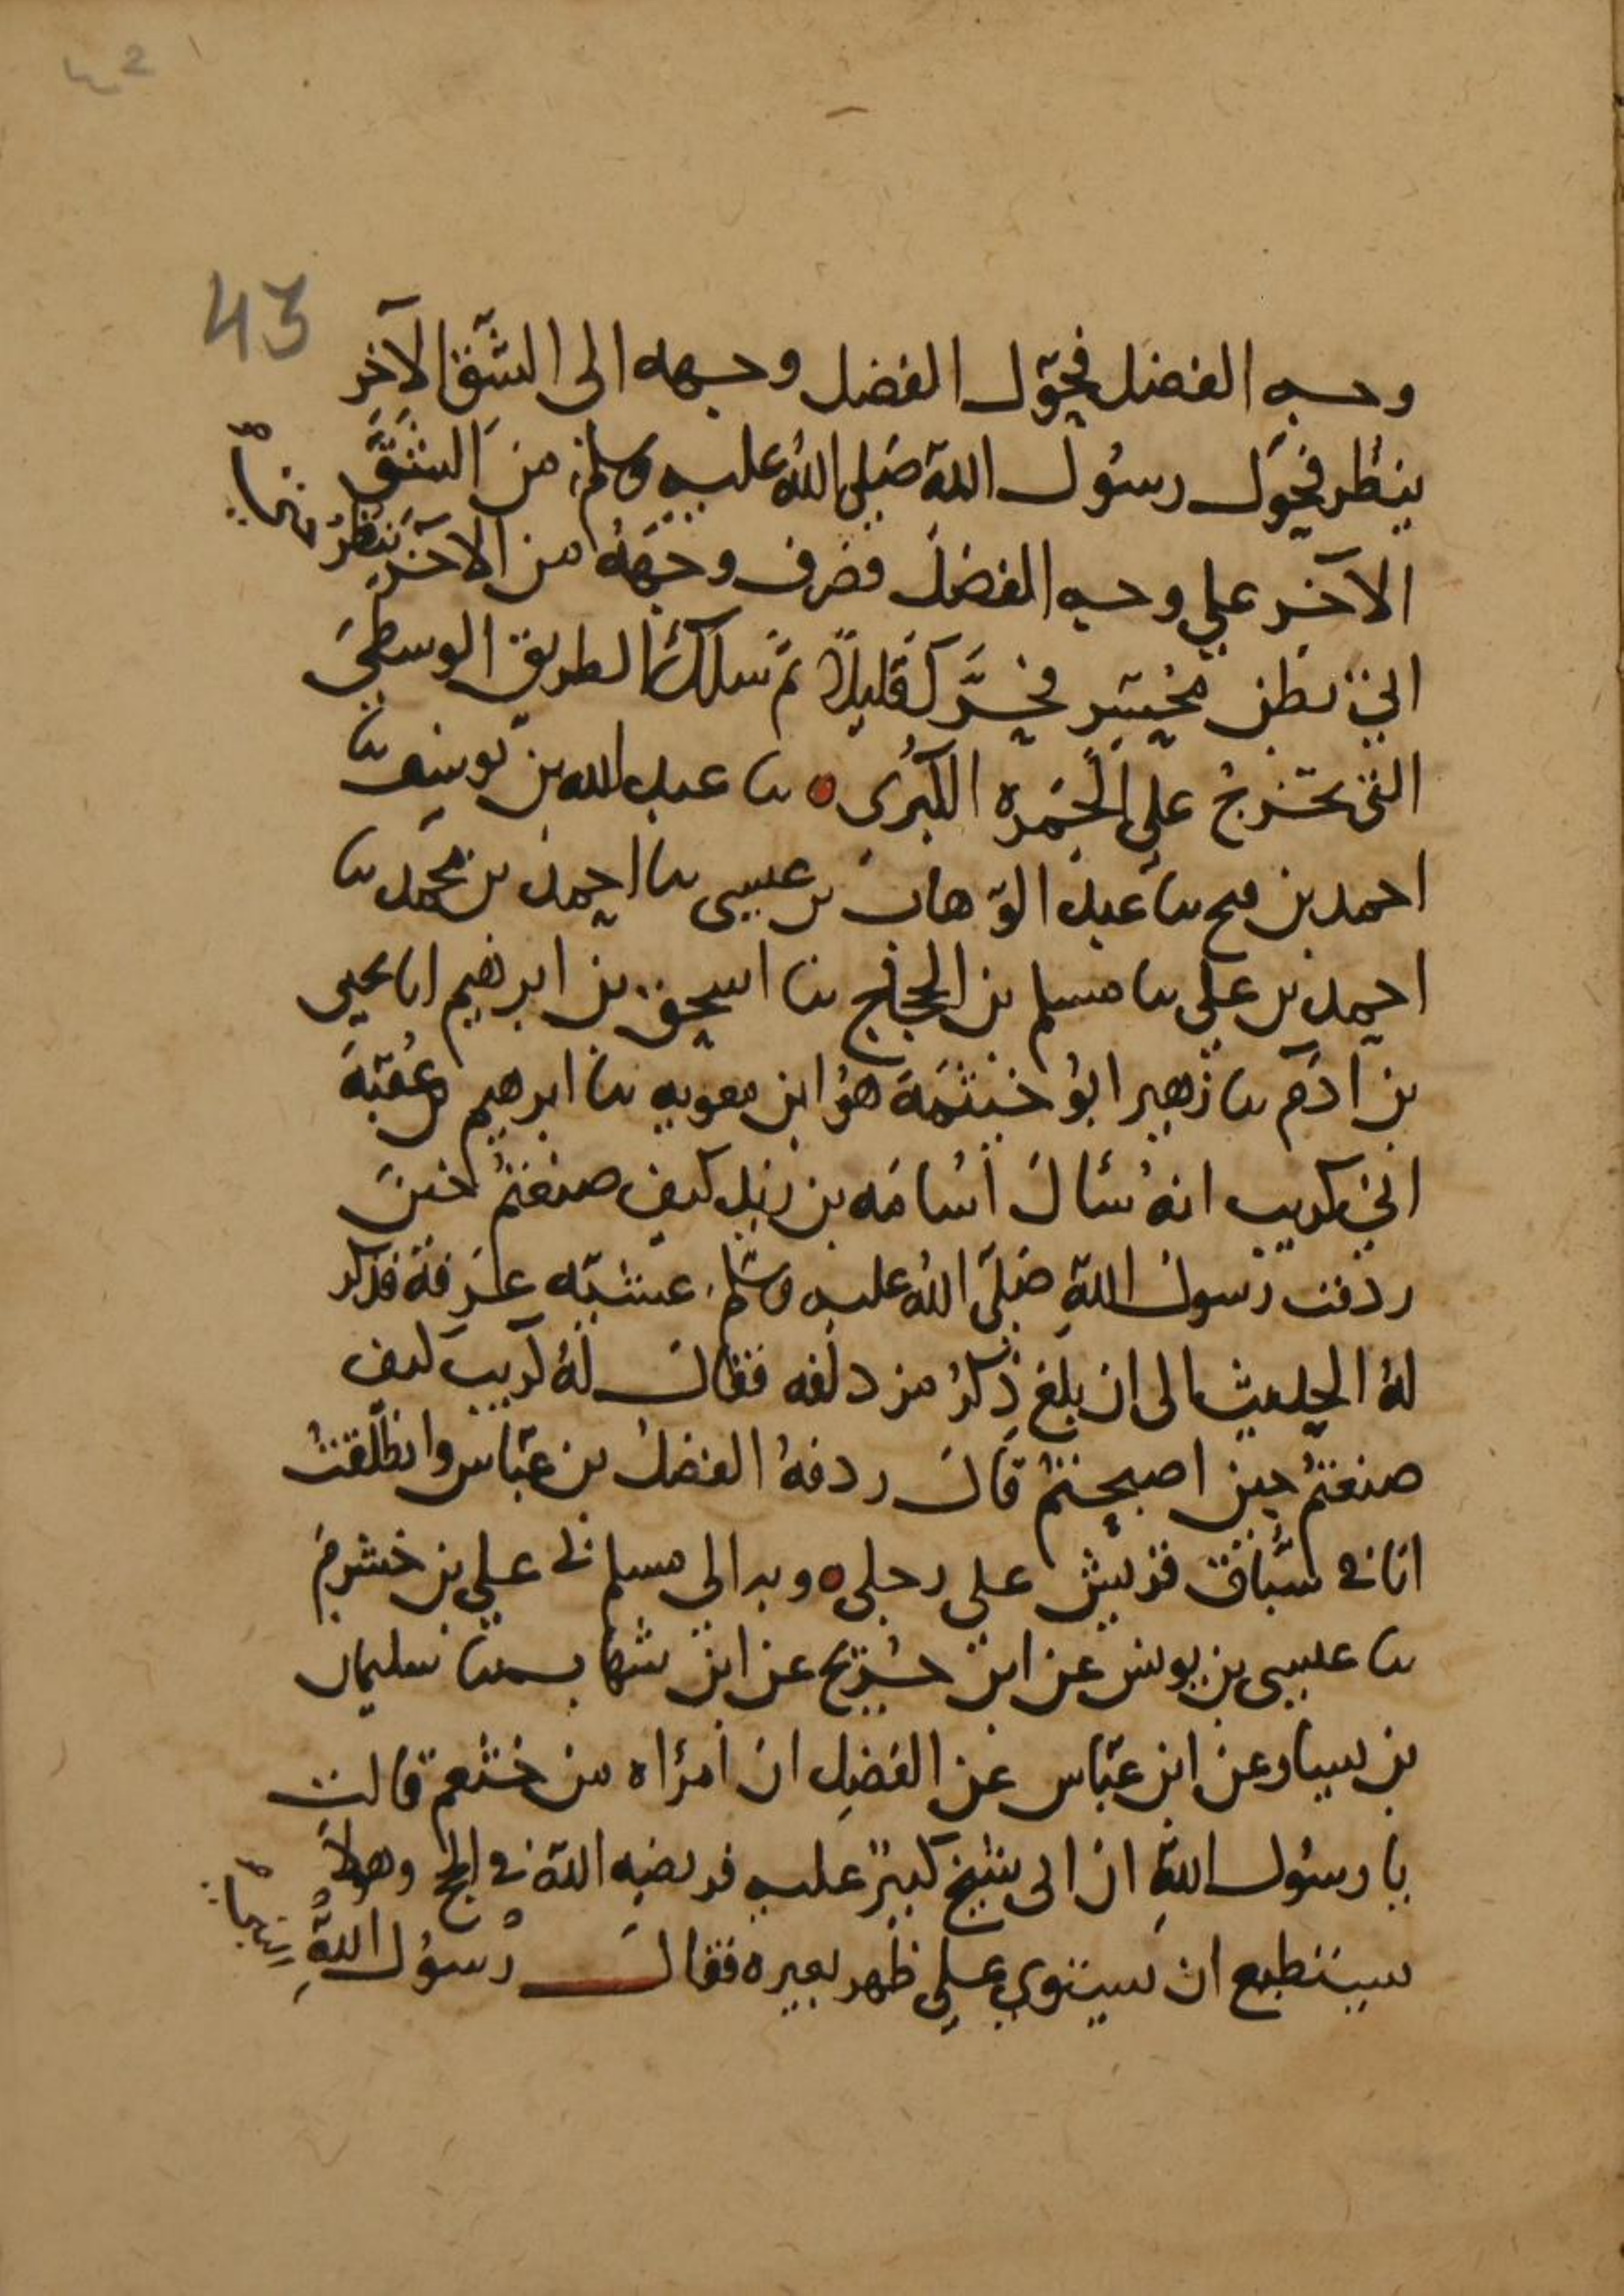 2
43
وجه الفضل فحوّل الفضل وجهه الى الشّق الآخر
ينظر فحوّل رسُول اللهِ صَلى اللهُ عليه وسلم من الشِّق
الآخر علي وجه الفضل فصَرف وجهَهُ من الآخر ينظرُ
اتي بطن محسِّر فحرَّكَ قليلاً ثمّ سلك الطريق الوسطي
التي تخرجُ على الجَمره الكُبرَى ○ نا عبد الله بن يوسف نا
احمد بن فتح نا عبد الوّهاب بن عيسى نا احمد بن محمد نا
احمد بن علي نا مسلم بن الحجّاج نا اسحق بن ابرهيم انا يحيى
بن ادَم نا زهير ابُو خيثَمَة هوُ ابن معويه نا ابرهيم بن عُقبَة
اني كريب انهُ سُأل اُسَامَه بن زيد كيف صنعتُم حين
ردفت رسول اللهِ صَلّى اللهُ عليه وسلم عشيّه عَرفة فذكر
لهُ الحديث الى ان بلغ ذكرُ مزدلفه فقال لهُ كريب كيف
صنعتُم حين اصبحتُم قال ردفهُ الفضلُ بن عبّاس وانطلقتُ
انا في سُبّاق قريش على رجلى ○ وبه الي مسلم نى علي بن خشرم
نا عيسى بن يونس عن ابن جُريج عن ابن شهاب نا سليمان
بن يسار عن ابن عبّاس عن الفضلِ ان امرُاه من خثعم قالت
يا رسُول اللهِ ان ابى شيخ كبيرٌ عليه فريضه الله في الحج وهو لا
يستطيع ان يستوي على ظهر بعيره فقال رسُول اللهِ